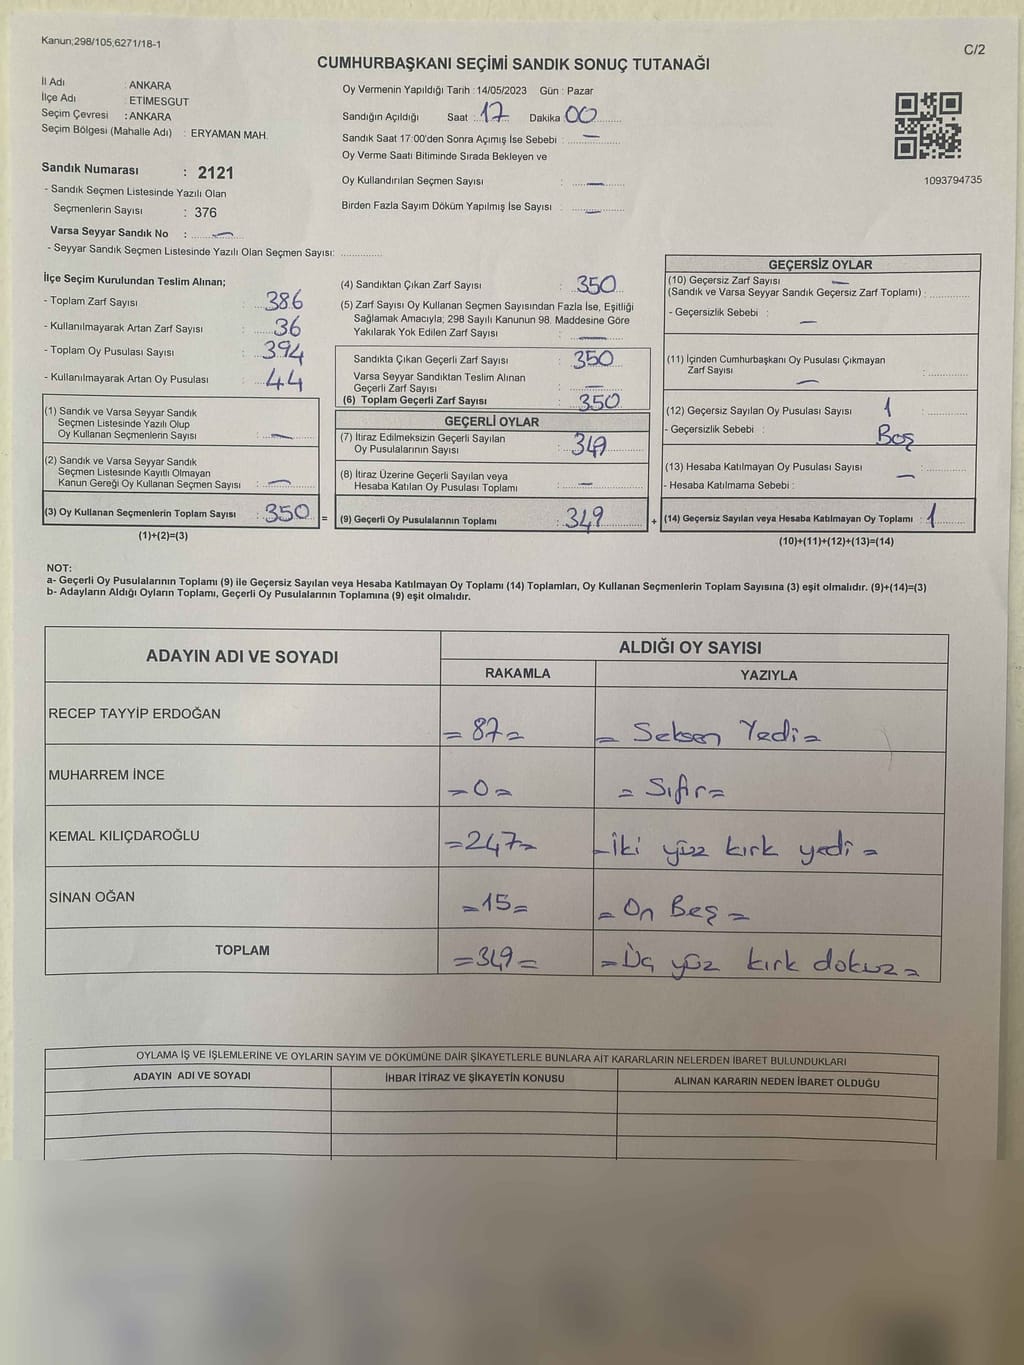 Kanun;298/105,6271/18-1
C/2
CUMHURBAŞKANI SEÇİMİ SANDIK SONUÇ TUTANAĞI
İl Adı : ANKARA
İlçe Adı : ETİMESGUT
Seçim Çevresi : ANKARA
Seçim Bölgesi (Mahalle Adı) : ERYAMAN MAH.
Oy Vermenin Yapıldığı Tarih : 14/05/2023 Gün : Pazar
Sandığın Açıldığı Saat : 17 Dakika 00
Sandık Saat 17:00'den Sonra Açımış İse Sebebi : —
Oy Verme Saati Bitiminde Sırada Bekleyen ve
Oy Kullandırılan Seçmen Sayısı : —
Birden Fazla Sayım Döküm Yapılmış İse Sayısı : —
1093794735
Sandık Numarası : 2121
- Sandık Seçmen Listesinde Yazılı Olan
Seçmenlerin Sayısı : 376
Varsa Seyyar Sandık No : —
- Seyyar Sandık Seçmen Listesinde Yazılı Olan Seçmen Sayısı:
İlçe Seçim Kurulundan Teslim Alınan;
- Toplam Zarf Sayısı : 386
- Kullanılmayarak Artan Zarf Sayısı : 36
- Toplam Oy Pusulası Sayısı : 394
- Kullanılmayarak Artan Oy Pusulası : 44
(1) Sandık ve Varsa Seyyar Sandık
Seçmen Listesinde Yazılı Olup
Oy Kullanan Seçmenlerin Sayısı : —
(2) Sandık ve Varsa Seyyar Sandık
Seçmen Listesinde Kayıtlı Olmayan
Kanun Gereği Oy Kullanan Seçmen Sayısı : —
(3) Oy Kullanan Seçmenlerin Toplam Sayısı : 350 =
(1)+(2)=(3)
(4) Sandıktan Çıkan Zarf Sayısı : 350
(5) Zarf Sayısı Oy Kullanan Seçmen Sayısından Fazla İse, Eşitliği
Sağlamak Amacıyla; 298 Sayılı Kanunun 98. Maddesine Göre
Yakılarak Yok Edilen Zarf Sayısı : —
Sandıkta Çıkan Geçerli Zarf Sayısı : 350
Varsa Seyyar Sandıktan Teslim Alınan
Geçerli Zarf Sayısı : —
(6) Toplam Geçerli Zarf Sayısı : 350
GEÇERLİ OYLAR
(7) İtiraz Edilmeksizin Geçerli Sayılan
Oy Pusulalarının Sayısı : 349
(8) İtiraz Üzerine Geçerli Sayılan veya
Hesaba Katılan Oy Pusulası Toplamı : —
(9) Geçerli Oy Pusulalarının Toplamı : 349 +
GEÇERSİZ OYLAR
(10) Geçersiz Zarf Sayısı : —
(Sandık ve Varsa Seyyar Sandık Geçersiz Zarf Toplamı) :
- Geçersizlik Sebebi : —
(11) İçinden Cumhurbaşkanı Oy Pusulası Çıkmayan
Zarf Sayısı : —
(12) Geçersiz Sayılan Oy Pusulası Sayısı : 1
- Geçersizlik Sebebi : Boş
(13) Hesaba Katılmayan Oy Pusulası Sayısı : —
- Hesaba Katılmama Sebebi :
(14) Geçersiz Sayılan veya Hesaba Katılmayan Oy Toplamı : 1
(10)+(11)+(12)+(13)=(14)
NOT:
a- Geçerli Oy Pusulalarının Toplamı (9) ile Geçersiz Sayılan veya Hesaba Katılmayan Oy Toplamı (14) Toplamları, Oy Kullanan Seçmenlerin Toplam Sayısına (3) eşit olmalıdır. (9)+(14)=(3)
b- Adayların Aldığı Oyların Toplamı, Geçerli Oy Pusulalarının Toplamına (9) eşit olmalıdır.
ADAYIN ADI VE SOYADI ALDIĞI OY SAYISI
RAKAMLA YAZIYLA
RECEP TAYYİP ERDOĞAN =87= = Seksen Yedi =
MUHARREM İNCE =0= = Sıfır =
KEMAL KILIÇDAROĞLU =247= =İki yüz kırk yedi =
SİNAN OĞAN =15= = On Beş =
TOPLAM =349= =Üç yüz kırk dokuz =
OYLAMA İŞ VE İŞLEMLERİNE VE OYLARIN SAYIM VE DÖKÜMÜNE DAİR ŞİKAYETLERLE BUNLARA AİT KARARLARIN NELERDEN İBARET BULUNDUKLARI
ADAYIN ADI VE SOYADI İHBAR İTİRAZ VE ŞİKAYETİN KONUSU ALINAN KARARIN NEDEN İBARET OLDUĞU